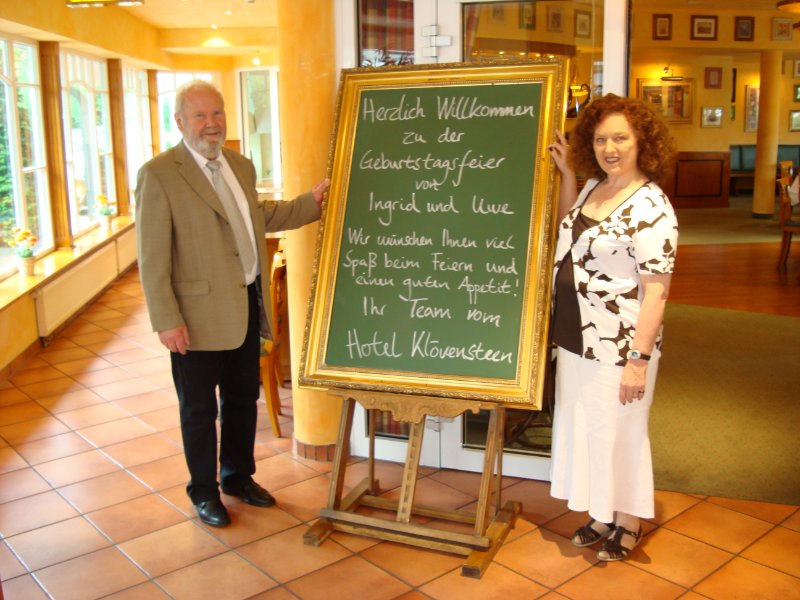 Herzlich Willkommen
zu der
Geburtstagsfeier
von
Ingrid und Uwe
Wir wünschen Ihnen viel
Spaß beim Feiern und
einen guten Appetit!
Ihr Team vom
Hotel Klövensteen